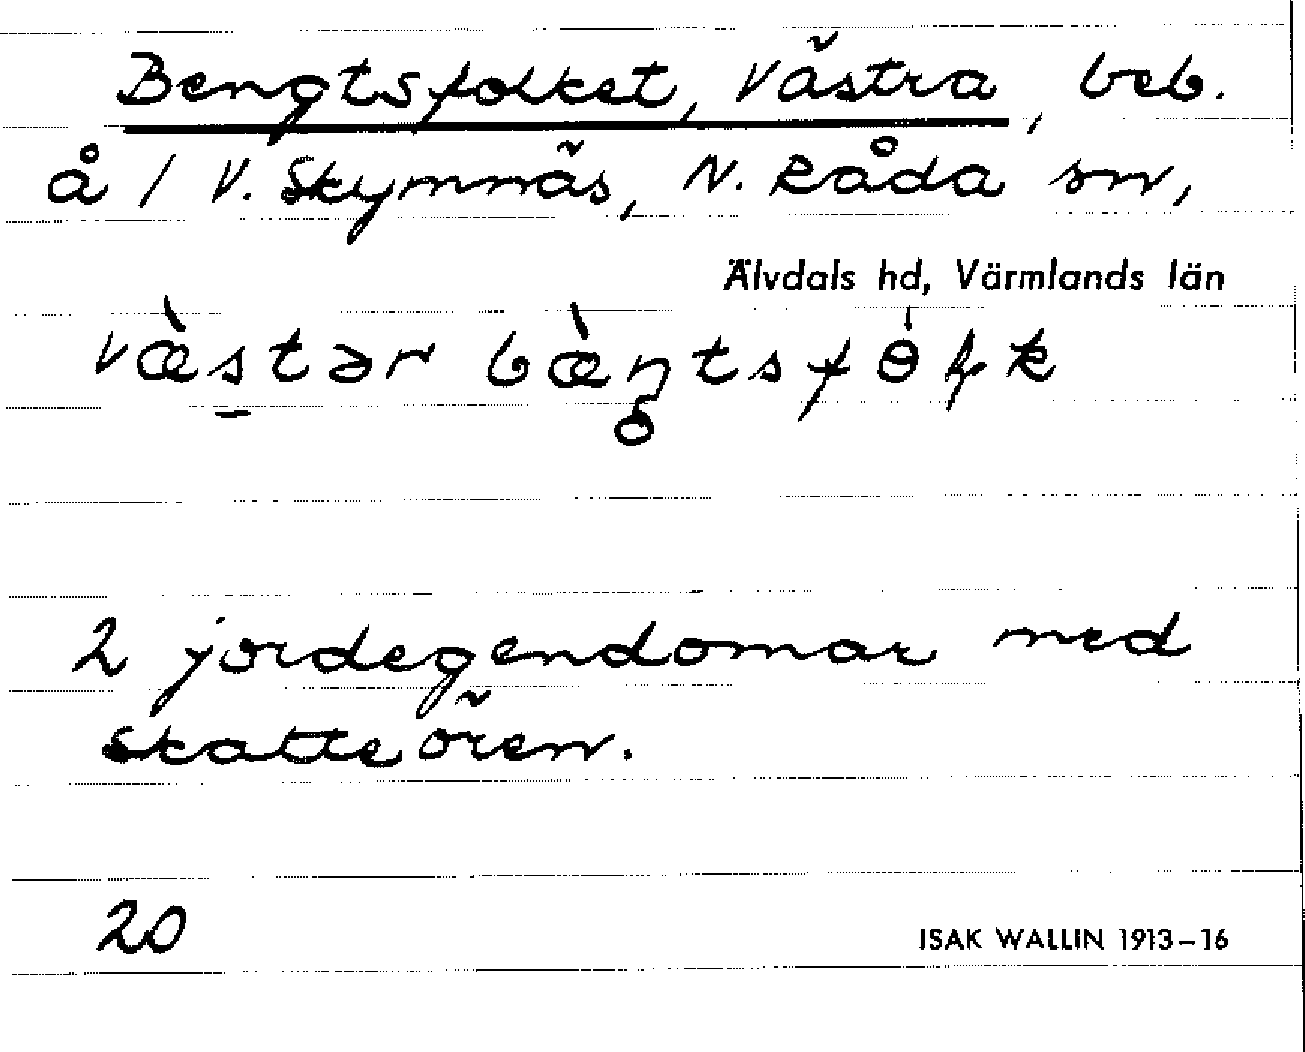 Bengtsfolket, Västra, beb.
å 1 V. Skymnäs, N. Råda sn,
Älvdals hd, Värmlands län
væ̀stər bæ̀ŋ̥tsfɵ̍ɽk
2 jordegendomar med
skatteören.
20
ISAK WALLIN 1913–16